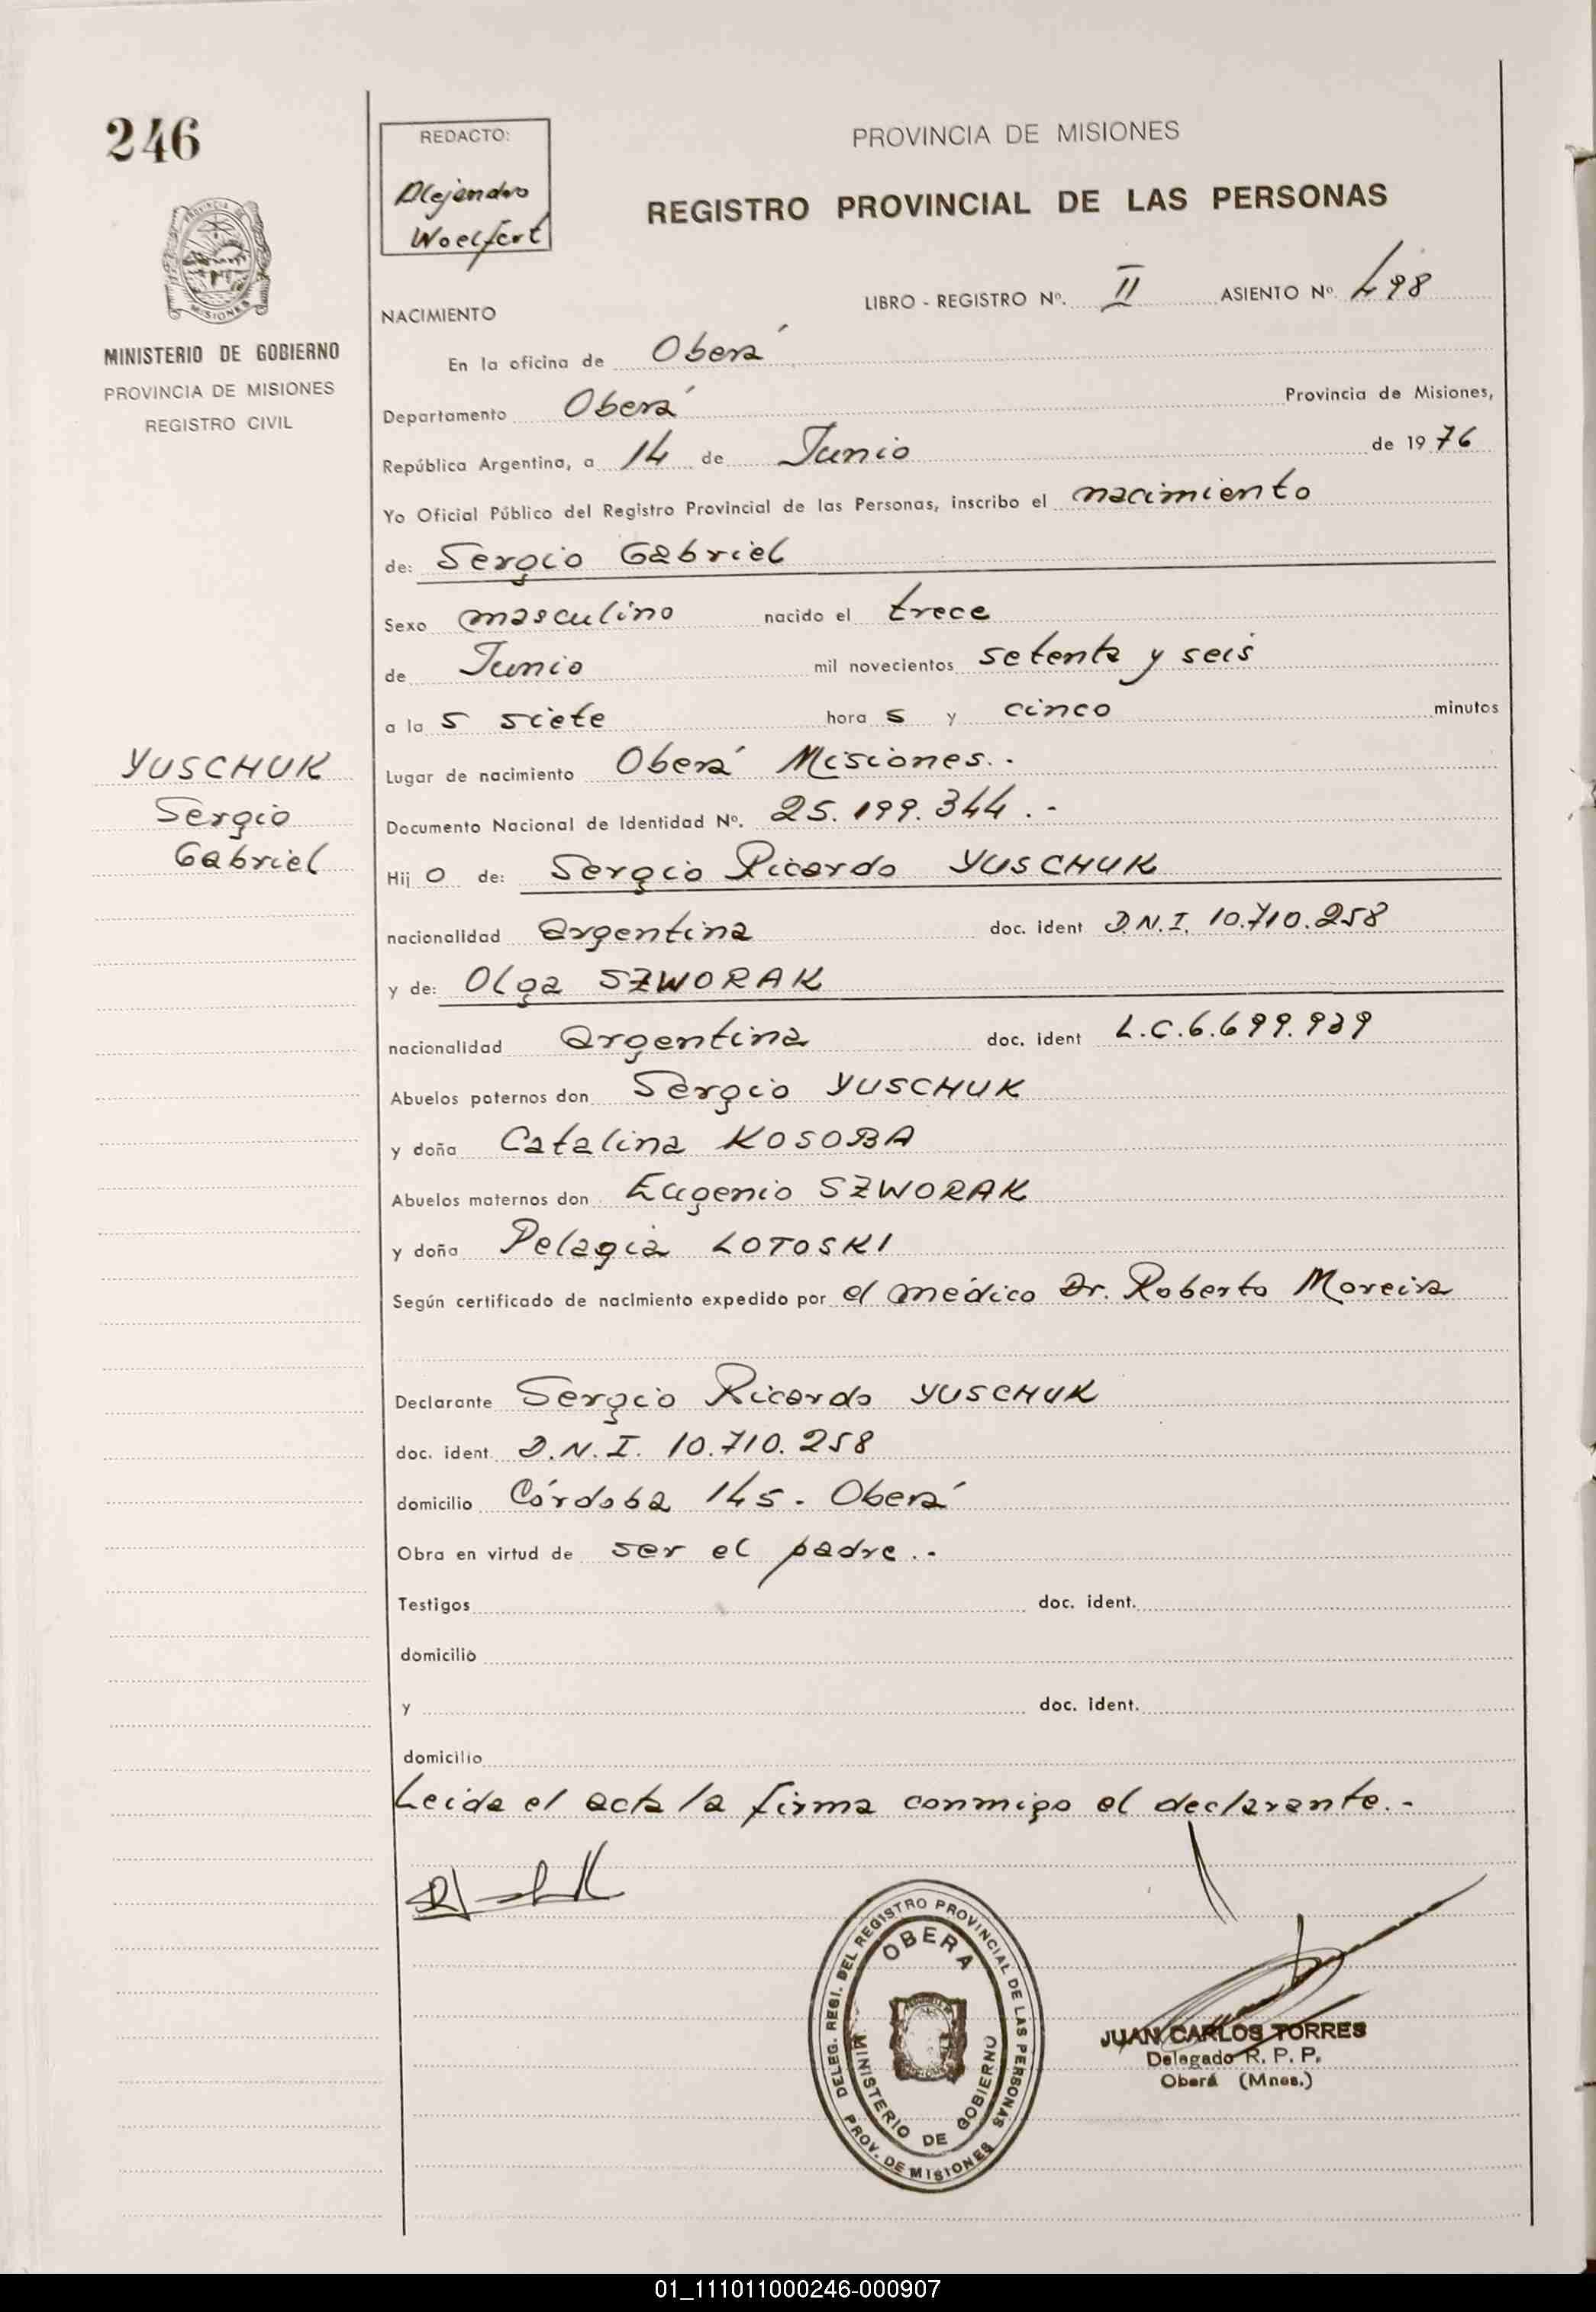 246
REDACTO:
Alejandro
Woelfert
PROVINCIA DE MISIONES
REGISTRO PROVINCIAL DE LAS PERSONAS
LIBRO - REGISTRO Nº. II ASIENTO Nº. 498
PROVINCIA DE
MISIONES
MINISTERIO DE GOBIERNO
PROVINCIA DE MISIONES
REGISTRO CIVIL
NACIMIENTO
En la oficina de Oberá
Departamento Oberá Provincia de Misiones,
República Argentina, a 14 de Junio de 1976
Yo Oficial Público del Registro Provincial de las Personas, inscribo el nacimiento
de: Sergio Gabriel
Sexo masculino nacido el trece
de Junio mil novecientos setenta y seis
a la s siete hora s y cinco minutos
YUSCHUK
Sergio
Gabriel
Lugar de nacimiento Oberá Misiones.-
Documento Nacional de Identidad Nº. 25.199.344.-
Hij o de: Sergio Ricardo YUSCHUK
nacionalidad argentina doc. ident D.N.I. 10.710.258
y de: Olga SZWORAK
nacionalidad argentina doc. ident L.C.6.699.939
Abuelos paternos don Sergio YUSCHUK
y doña Catalina KOSOBA
Abuelos maternos don Eugenio SZWORAK
y doña Pelagia LOTOSKI
Según certificado de nacimiento expedido por el médico Dr. Roberto Moreira
Declarante Sergio Ricardo YUSCHUK
doc. ident D.N.I. 10.710.258
domicilio Córdoba 145. Oberá
Obra en virtud de ser el padre.-
Testigos doc. ident.
domicilio
y doc. ident.
domicilio
Leida el acta la firma conmigo el declarante.-
DELEG. REGI. DEL REGISTRO PROVINCIAL DE LAS PERSONAS
OBERA
MINISTERIO DE GOBIERNO
PROV. DE MISIONES
JUAN CARLOS TORRES
Delegado R. P. P.
Oberá (Mnes.)
01_111011000246-000907